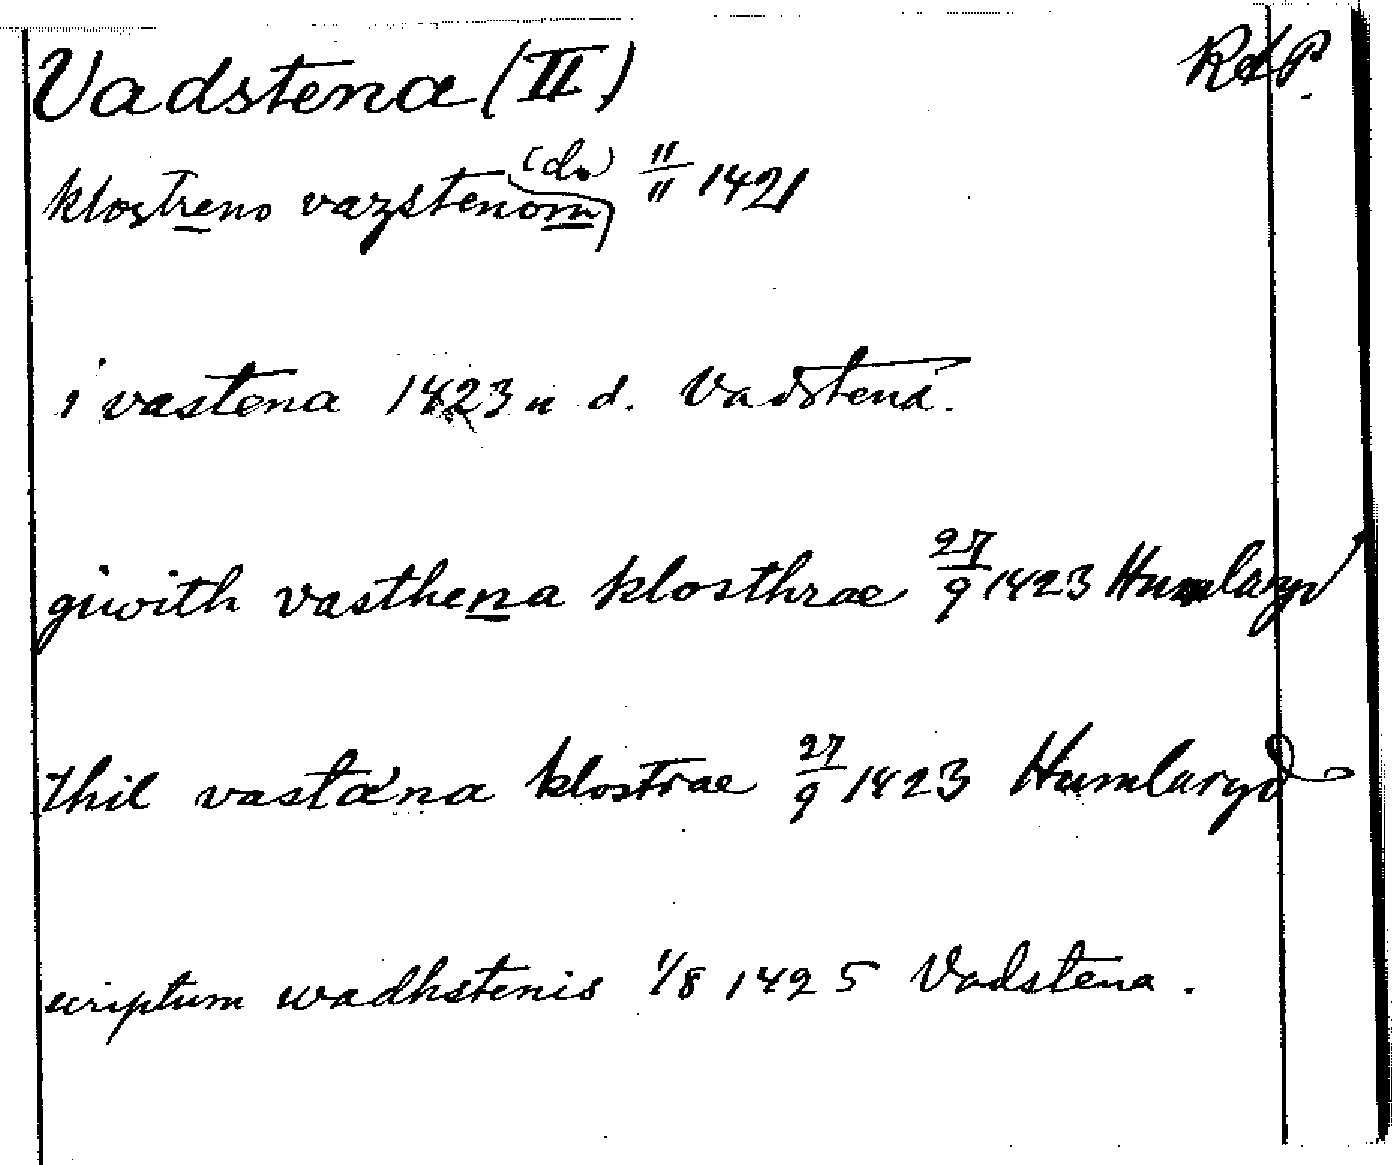 Vadstena (II) RdP.
klostreno vazstenom (do) 11/11 1421
i vastena 1423 u d. Vadstena.
giwith vasthena klosthrae 27/9 1423 Humlaryd
thil vastäna klostrae 27/9 1423 Humlaryd
scriptum wadhstenis 1/8 1425 Vadstena.